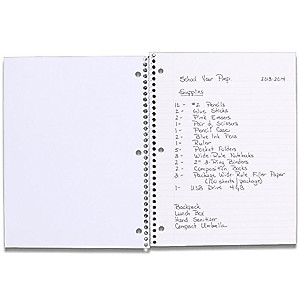 School Year Prep. 2013-2014
Supplies
12 - #2 Pencils
2 - Glue Sticks
2 - Pink Erasers
1 - Pair of Scissors
1 - Pencil Case
2 - Blue Ink Pens
1 - Ruler
5 - Pocket Folders
3 - Wide Rule Notebooks
2 - 2" 3-Ring Binders
2 - Composition Books
3 - Package Wide Rule Filler Paper
(150 sheets/package)
1 - USB Drive 4GB
Backpack
Lunch Box
Hand Sanitizer
Compact Umbrella